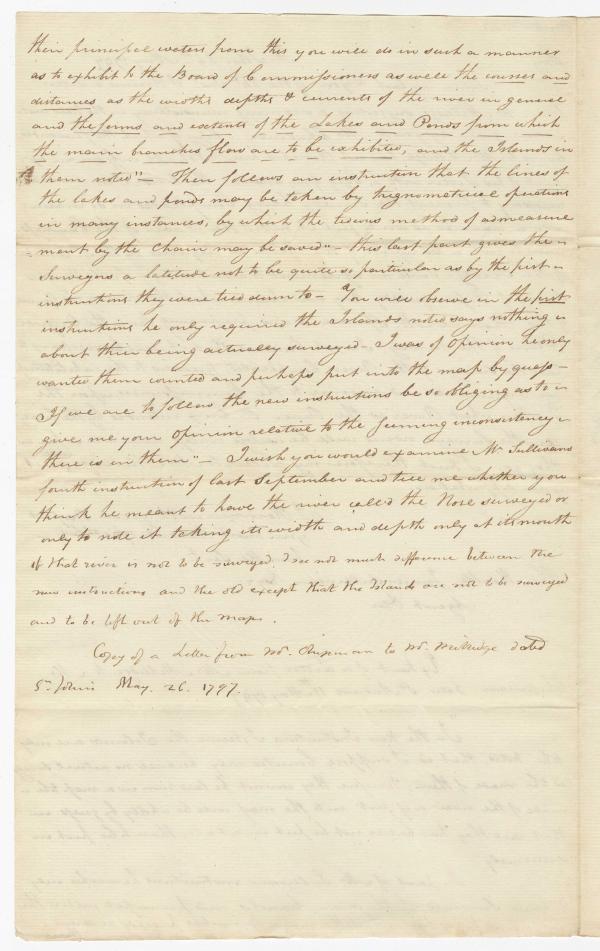 their principal waters from this you will do in such a manner
as to exhibit to the Board of Commissioners as well the courses and
distances as the widths depths & currents of the river in general
and the forms and extents of the Lakes and Ponds from which
the main branches flow are to be exhibited, and the Islands in
them noted" — Then follows an instruction that the lines of
the lakes and ponds may be taken by trignometrical operations
in many instances, by which the tedious method of admeasure
ment by the Chain may be saved" — this last part gives the
Surveyors a latitude not to be quite so particular as by the first
instructions they were tied down to — "You will observe in the first
instructions he only required the Islands noted says nothing
about their being actually surveyed — I was of Opinion he only
wanted them counted and perhaps put into the map by guess —
If we are to follow the new instructions be so obliging as to
give me your Opinion relative to the seeming inconsistency
there is in them" — I wish you would examine Mr. Sullivans
fourth instruction of last September and tell me whether you
think he meant to have the river called the Nore surveyed or
only to note it taking its width and depth only at its mouth
if that river is not to be surveyed. I see not much difference between the
new instructions and the old except that the Islands are not to be surveyed
and to be left out of the maps.
Copy of a Letter from Mr. Chipman to Mr. dated
St. Johns May. 26. 1797.